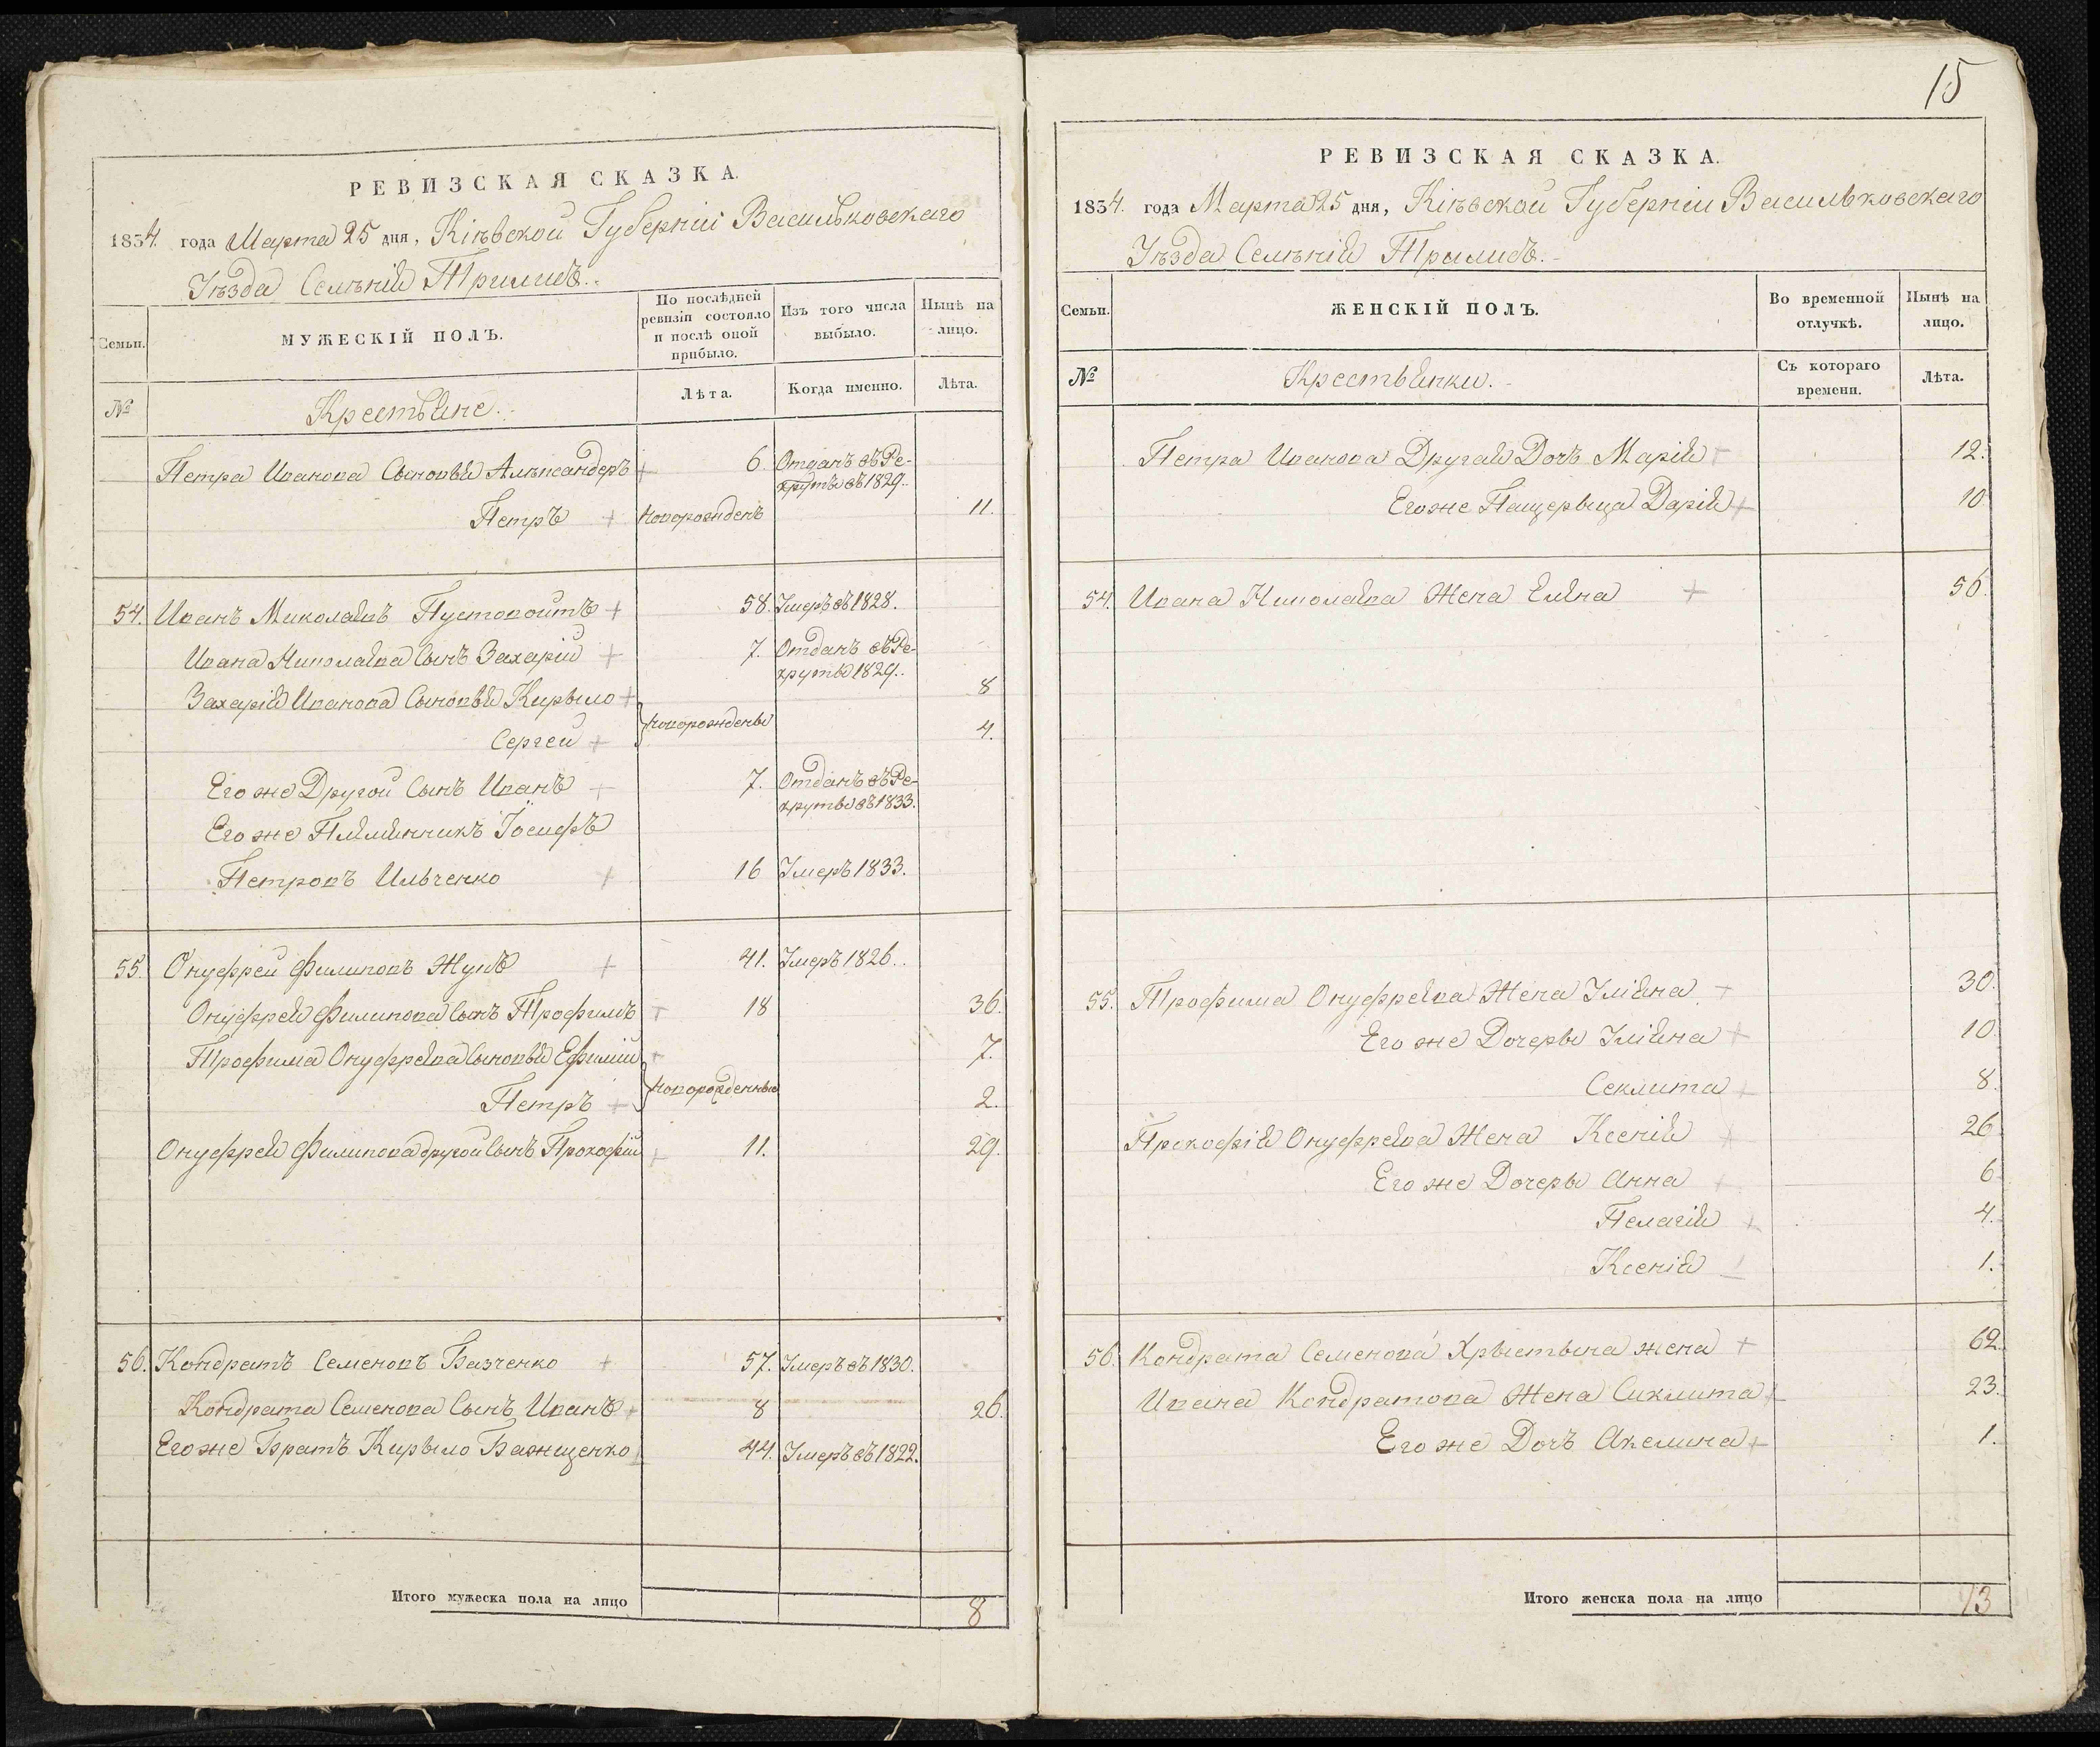 РЕВИЗСКАЯ СКАЗКА.
1834. года Марта 25 дня, Кіевской Губерніи Васильковскаго
Уѣзда Селѣнія Трилисъ.
Семьи.
МУЖЕСКІЙ ПОЛЪ.
По послѣдней ревизіи состояло и послѣ оной прибыло.
Изъ того числа выбыло.
Нынѣ на лицо.
№
Крестьяне.
Лѣта.
Когда именно.
Лѣта.
Петра Иванова Сыновья Алѣксандеръ + 6. Отданъ въ Ре-
круты въ 1829.
Петръ + новорожденъ 11.
54. Иванъ Миколаевъ Пустовойтъ + 58. Умеръ въ 1828.
Ивана Николаева Сынъ Захарій + 7. Отданъ въ Ре-
круты 1829.
Захарія Иванова Сыновья Кирыло + 8
новорождены
Сергей + 4.
Его же Другой Сынъ Иванъ + 7. Отданъ въ Ре-
круты въ 1833.
Его же Племянникъ Іосифъ
Петровъ Ильченко + 16 Умеръ 1833.
55. Онуфрей Филиповъ Жукъ + 41. Умеръ 1826.
Онуфрея Филипова Сынъ Трофимъ + 18 36.
Трофима Онуфреева Сыновья Ефимій + 7.
новорожденны
Петръ + 2.
Онуфрея Филипова другой Сынъ Прокофій + 11. 29.
56. Кондратъ Семеновъ Базченко + 57. Умеръ въ 1830.
Кондрата Семенова Сынъ Иванъ + 8 26.
Его же Братъ Кирыло Бажщенко + 44. Умеръ въ 1822.
Итого мужеска пола на лицо 8
15
РЕВИЗСКАЯ СКАЗКА.
1834. года Марта 25 дня, Кіевской Губерніи Васильковскаго
Уѣзда Селѣнія Трилисъ.
Семьи.
ЖЕНСКІЙ ПОЛЪ.
Во временной отлучкѣ.
Нынѣ на лицо.
№
Крестьянки.
Съ котораго времени.
Лѣта.
Петра Иванова Другая Дочь Марія + 12.
Его же Пащерыца Дарія + 10
54. Ивана Николаева Жена Елена + 56.
55. Трофима Онуфреева Жена Уліяна + 30.
Его же Дочеры Уліяна + 10
Секлита + 8.
Прокофія Онуфреева Жена Ксенія + 26
Его же Дочеры Анна + 6
Пелагія + 4.
Ксенія + 1.
56. Кондрата Семенова Хрыстына жена + 62.
Ивана Кондратова Жена Сиклита + 23.
Его же Дочь Акелина + 1.
Итого женска пола на лицо 13